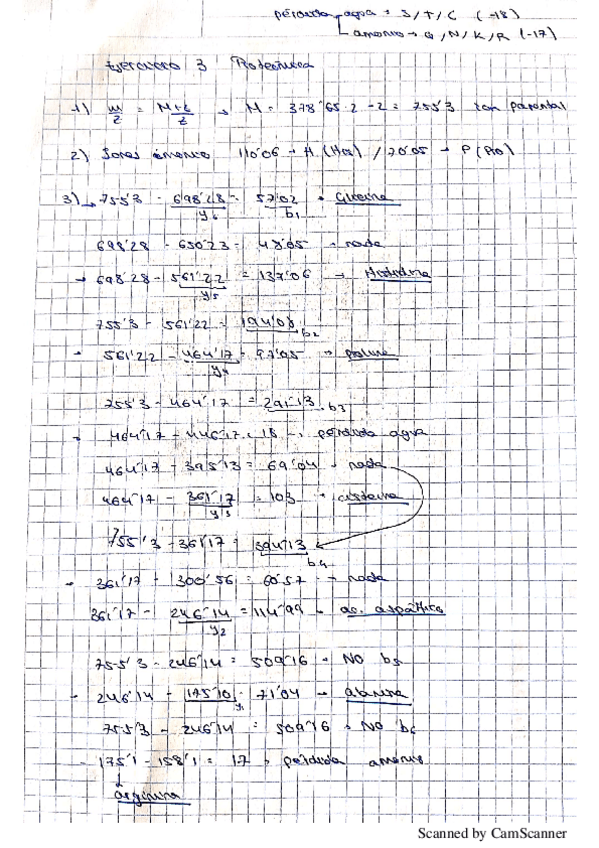 pérdida agua = S/T/C (-18)
amonio → Q/N/K/R (-17)
Ejercicio 3 Proteómica
1) m/z = M+z/z → M = 378'65·2 - 2 = 755'3 ion parental
2) Iones inmonio 110'06 → H (His) / 70'05 → P (Pro)
3) → 755'3 - 698'28 = 57'02 → Glicina
y6 b1
698'28 - 650'23 = 48'05 → nada
→ 698'28 - 561'22 = 137'06 → Histidina
y5
755'3 - 561'22 = 194'08
b2
- 561'22 - 464'17 = 97'05 → prolina
y4
755'3 - 464'17 = 291'13 b3
- 464'17 - 446'17 = 18 → pérdida agua
464'17 - 395'13 = 69'04 → nada
464'17 - 361'17 = 103 → cisteína
y3
755'3 - 361'17 = 394'13
b4
- 361'17 - 300'56 = 60'57 → nada
361'17 - 246'14 = 114'99 → ac. aspártico
y2
755'3 - 246'14 = 509'16 → NO b5
- 246'14 - 175'10 = 71'04 → alanina
y1
755'3 - 246'14 = 509'16 → NO b6
- 175'1 - 158'1 = 17 → pérdida amonio
arginina
Scanned by CamScanner